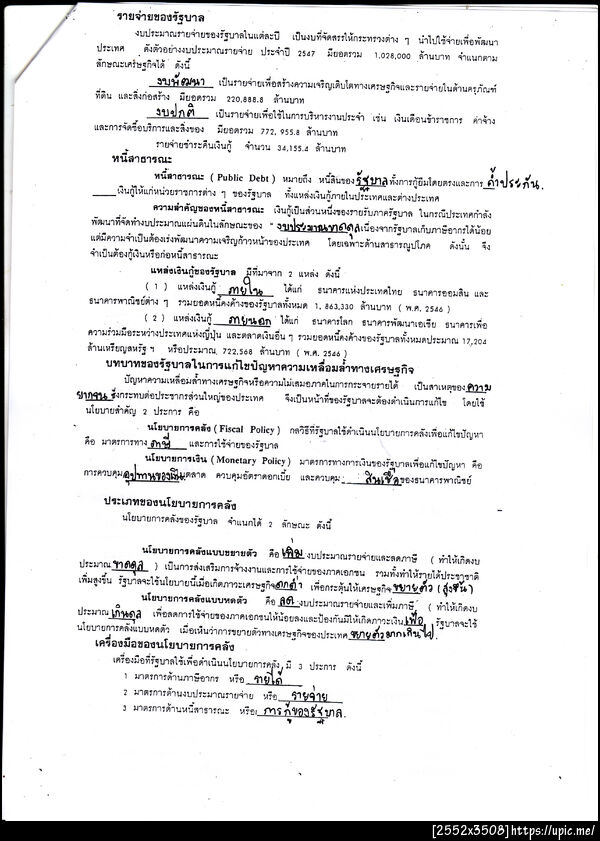 รายจ่ายของรัฐบาล
งบประมาณรายจ่ายของรัฐบาลในแต่ละปี เป็นงบที่จัดสรรให้กระทรวงต่าง ๆ นำไปใช้จ่ายเพื่อพัฒนา
ประเทศ ดังตัวอย่างงบประมาณรายจ่าย ประจำปี 2547 มียอดรวม 1,028,000 ล้านบาท จำแนกตาม
ลักษณะเศรษฐกิจได้ ดังนี้
งบพัฒนา เป็นรายจ่ายเพื่อสร้างความเจริญเติบโตทางเศรษฐกิจและรายจ่ายในด้านครุภัณฑ์
ที่ดิน และสิ่งก่อสร้าง มียอดรวม 220,888.8 ล้านบาท
งบปกติ เป็นรายจ่ายเพื่อใช้ในการบริหารงานประจำ เช่น เงินเดือนข้าราชการ ค่าจ้าง
และการจัดซื้อบริการและสิ่งของ มียอดรวม 772,955.8 ล้านบาท
รายจ่ายชำระคืนเงินกู้ จำนวน 34,155.4 ล้านบาท
หนี้สาธารณะ
หนี้สาธารณะ (Public Debt) หมายถึง หนี้สินของรัฐบาลทั้งการกู้ยืมโดยตรงและการค้ำประกัน.
เงินกู้ให้แก่หน่วยราชการต่าง ๆ ของรัฐบาล ทั้งแหล่งเงินกู้ภายในประเทศและต่างประเทศ
ความสำคัญของหนี้สาธารณะ เงินกู้เป็นส่วนหนึ่งของรายรับภาครัฐบาล ในกรณีประเทศกำลัง
พัฒนาที่จัดทำงบประมาณแผ่นดินในลักษณะของ " งบประมาณขาดดุลเนื่องจากรัฐบาลเก็บภาษีอากรได้น้อย
แต่มีความจำเป็นต้องเร่งพัฒนาความเจริญก้าวหน้าของประเทศ โดยเฉพาะด้านสาธารณูปโภค ดังนั้น จึง
จำเป็นต้องกู้เงินหรือก่อหนี้สาธารณะ
แหล่งเงินกู้ของรัฐบาล มีที่มาจาก 2 แหล่ง ดังนี้
( 1 ) แหล่งเงินกู้ ภายใน ได้แก่ ธนาคารแห่งประเทศไทย ธนาคารออมสิน และ
ธนาคารพาณิชย์ต่าง ๆ รวมยอดหนี้คงค้างของรัฐบาลทั้งหมด 1,863,330 ล้านบาท ( พ.ศ. 2546 )
( 2 ) แหล่งเงินกู้ ภายนอก ได้แก่ ธนาคารโลก ธนาคารพัฒนาเอเชีย ธนาคารเพื่อ
ความร่วมมือระหว่างประเทศแห่งญี่ปุ่น และตลาดเงินอื่น ๆ รวมยอดหนี้คงค้างของรัฐบาลทั้งหมดประมาณ 17,204
ล้านเหรียญสหรัฐ ฯ หรือประมาณ 722,568 ล้านบาท ( พ.ศ. 2546 )
บทบาทของรัฐบาลในการแก้ไขปัญหาความเหลื่อมล้ำทางเศรษฐกิจ
ปัญหาความเหลื่อมล้ำทางเศรษฐกิจหรือความไม่เสมอภาคในการกระจายรายได้ เป็นสาเหตุของความ
ยากจน ซึ่งกระทบต่อประชากรส่วนใหญ่ของประเทศ จึงเป็นหน้าที่ของรัฐบาลจะต้องดำเนินการแก้ไข โดยใช้
นโยบายสำคัญ 2 ประการ คือ
นโยบายการคลัง (Fiscal Policy) กลวิธีที่รัฐบาลใช้ดำเนินนโยบายการคลังเพื่อแก้ไขปัญหา
คือ มาตรการทางภาษี และการใช้จ่ายของรัฐบาล
นโยบายการเงิน (Monetary Policy) มาตรการทางการเงินของรัฐบาลเพื่อแก้ไขปัญหา คือ
การควบคุมอุปทานของเงินตลาด ควบคุมอัตราดอกเบี้ย และควบคุม สินเชื่อของธนาคารพาณิชย์
ประเภทของนโยบายการคลัง
นโยบายการคลังของรัฐบาล จำแนกได้ 2 ลักษณะ ดังนี้
นโยบายการคลังแบบขยายตัว คือเพิ่มงบประมาณรายจ่ายและลดภาษี ( ทำให้เกิดงบ
ประมาณขาดดุล ) เป็นการส่งเสริมการจ้างงานและการใช้จ่ายของภาคเอกชน รวมทั้งทำให้รายได้ประชาชาติ
เพิ่มสูงขึ้น รัฐบาลจะใช้นโยบายนี้เมื่อเกิดภาวะเศรษฐกิจตกต่ำ เพื่อกระตุ้นให้เศรษฐกิจขยายตัว (สูงขึ้น)
นโยบายการคลังแบบหดตัว คือลดงบประมาณรายจ่ายและเพิ่มภาษี ( ทำให้เกิดงบ
ประมาณเกินดุล เพื่อลดการใช้จ่ายของภาคเอกชนให้น้อยลงและป้องกันมิให้เกิดภาวะเงินเฟ้อ รัฐบาลจะใช้
นโยบายการคลังแบบหดตัว เมื่อเห็นว่าการขยายตัวทางเศรษฐกิจของประเทศขยายตัวมากเกินไป.
เครื่องมือของนโยบายการคลัง
เครื่องมือที่รัฐบาลใช้เพื่อดำเนินนโยบายการคลัง มี 3 ประการ ดังนี้
1 มาตรการด้านภาษีอากร หรือ รายได้
2 มาตรการด้านงบประมาณรายจ่าย หรือ รายจ่าย
3 มาตรการด้านหนี้สาธารณะ หรือ การกู้ของรัฐบาล.
[2552x3508]https://upic.me/